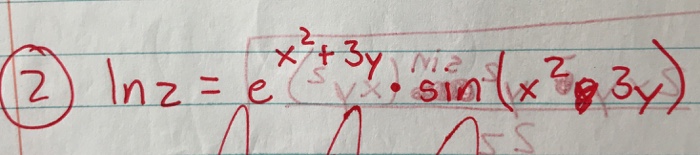 ② ln z = e^{x^2 + 3y} · sin(x^2 3y)